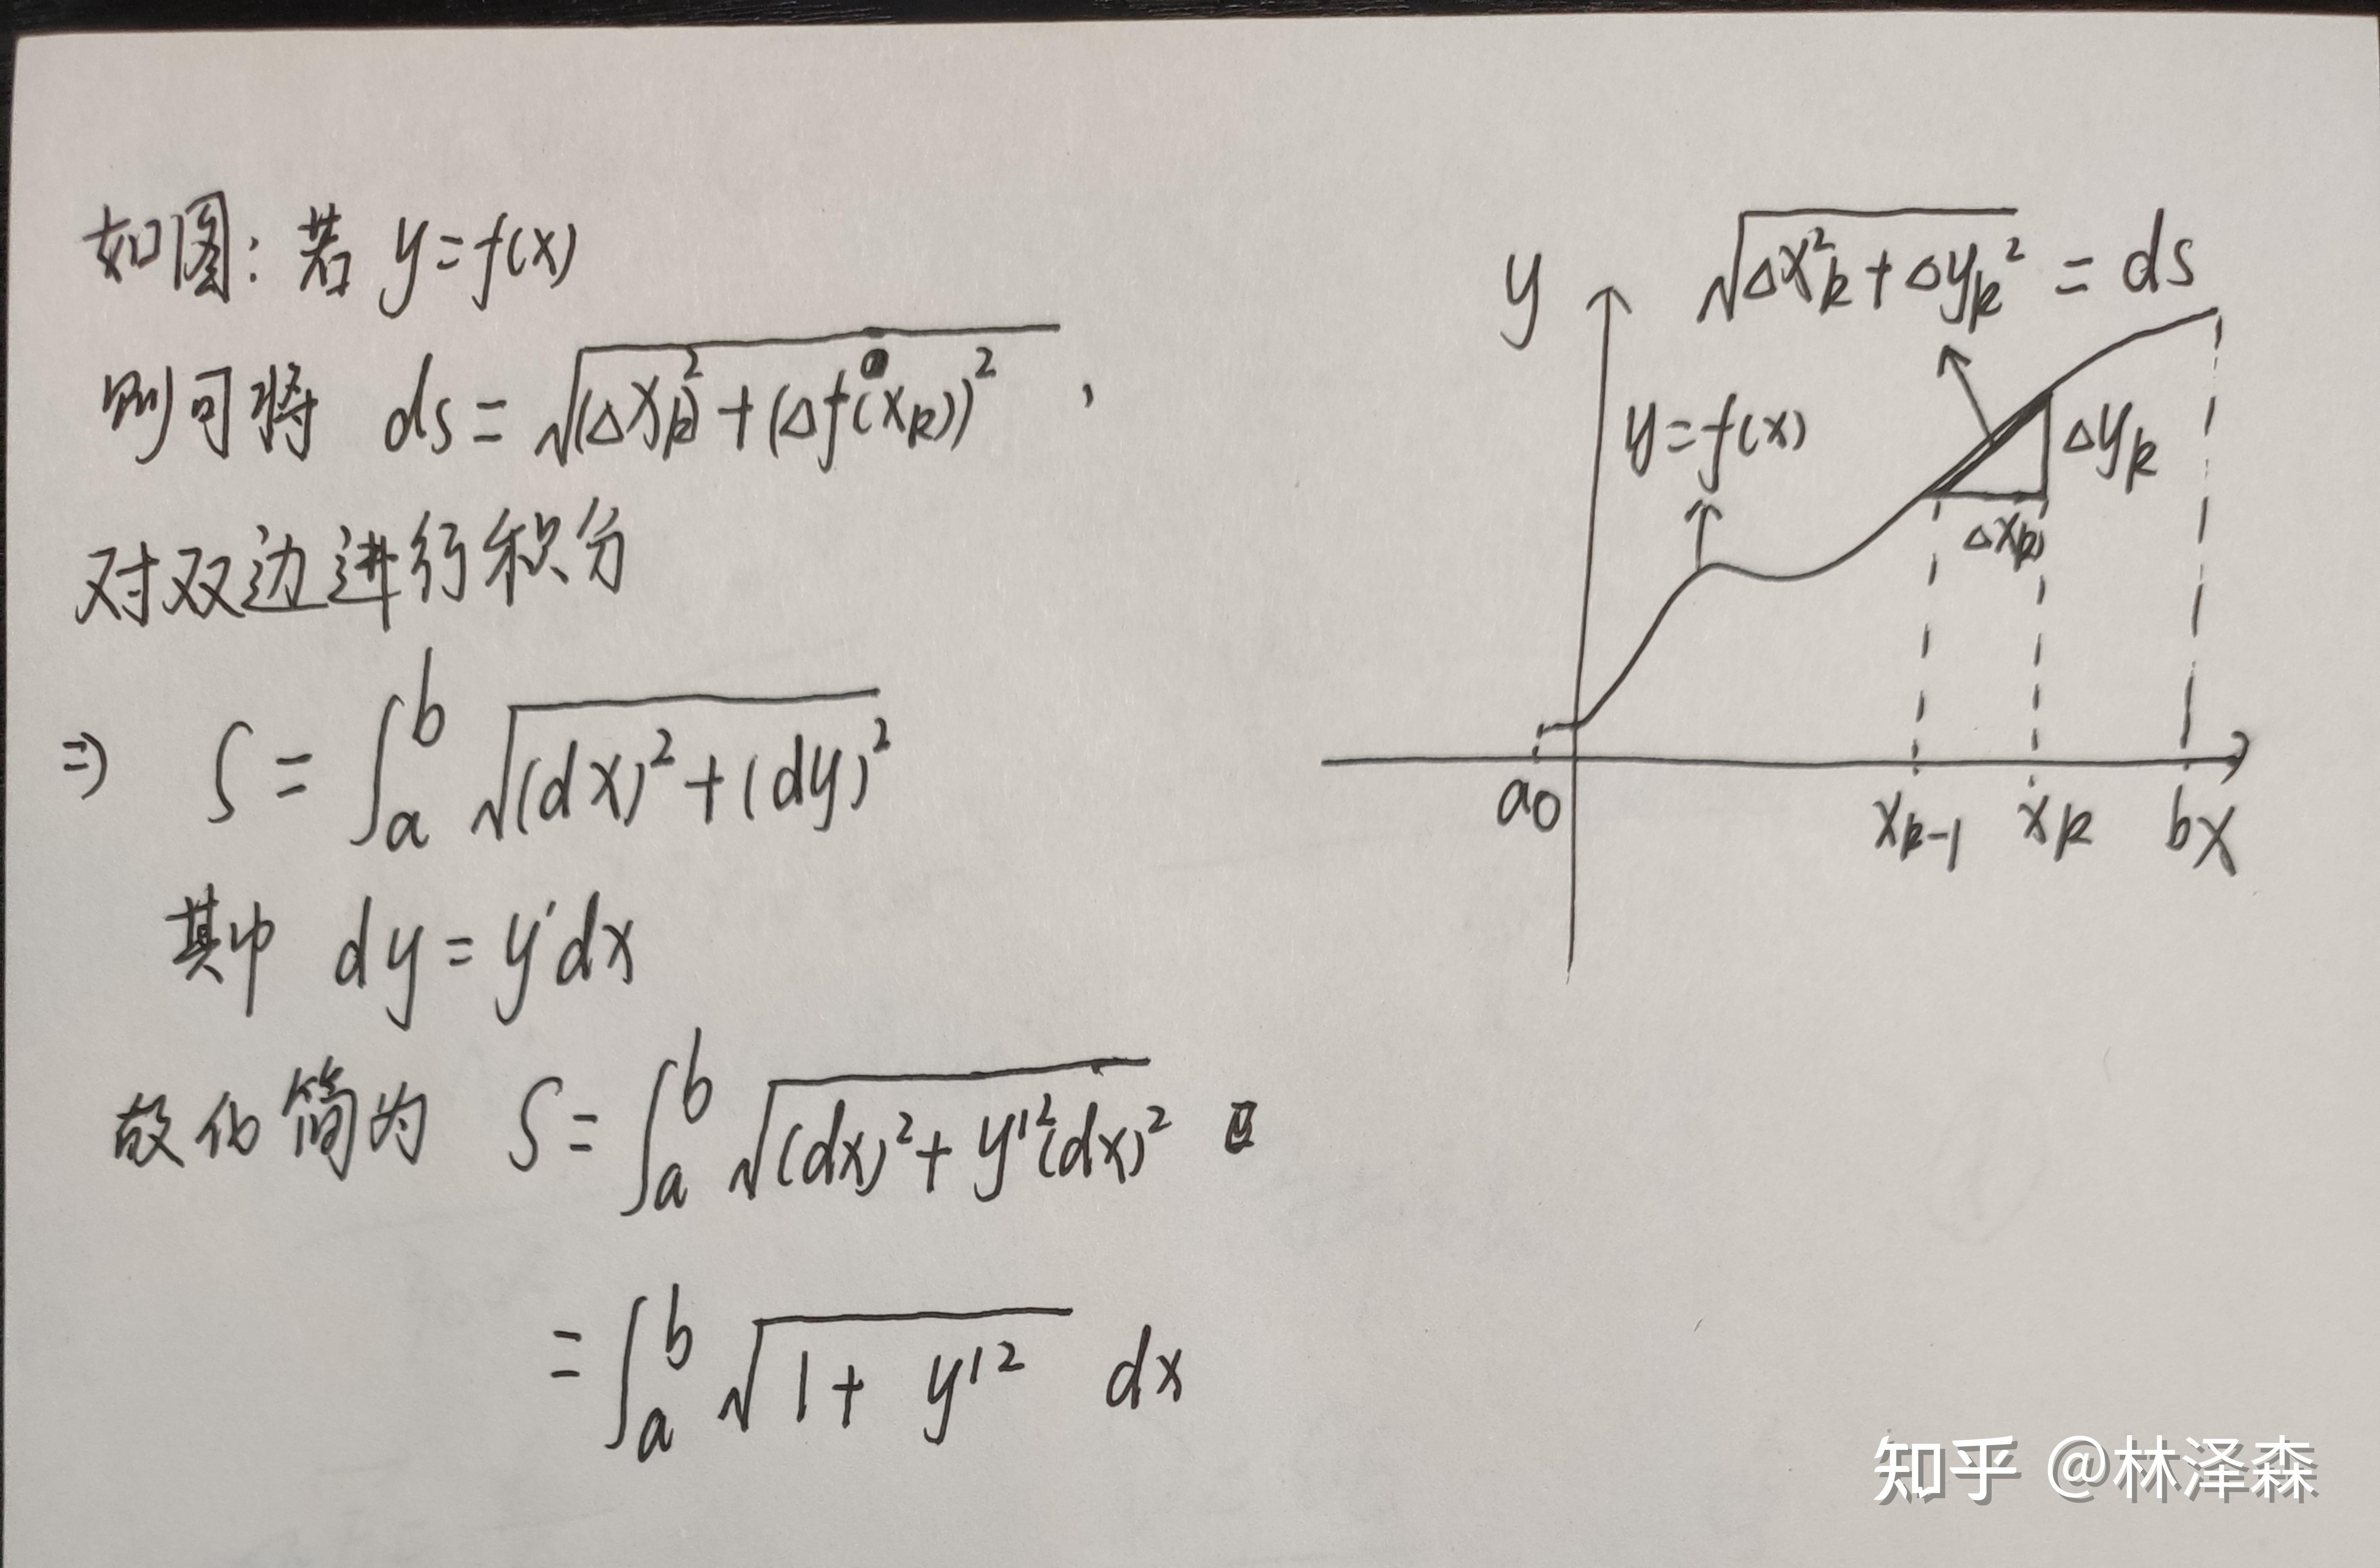 如图: 若 y=f(x)
则可将 ds = √((Δx_k)² + (Δf(x_k))²) ,
对双边进行积分
⇒ S = ∫_a^b √((dx)² + (dy)²)
其中 dy = y'dx
故化简为 S = ∫_a^b √((dx)² + y'²(dx)²)
= ∫_a^b √(1 + y'²) dx
y
√(Δx_k² + Δy_k²) = ds
y=f(x)
Δy_k
Δx_k
a 0 x_{k-1} x_k b x
知乎 @林泽森